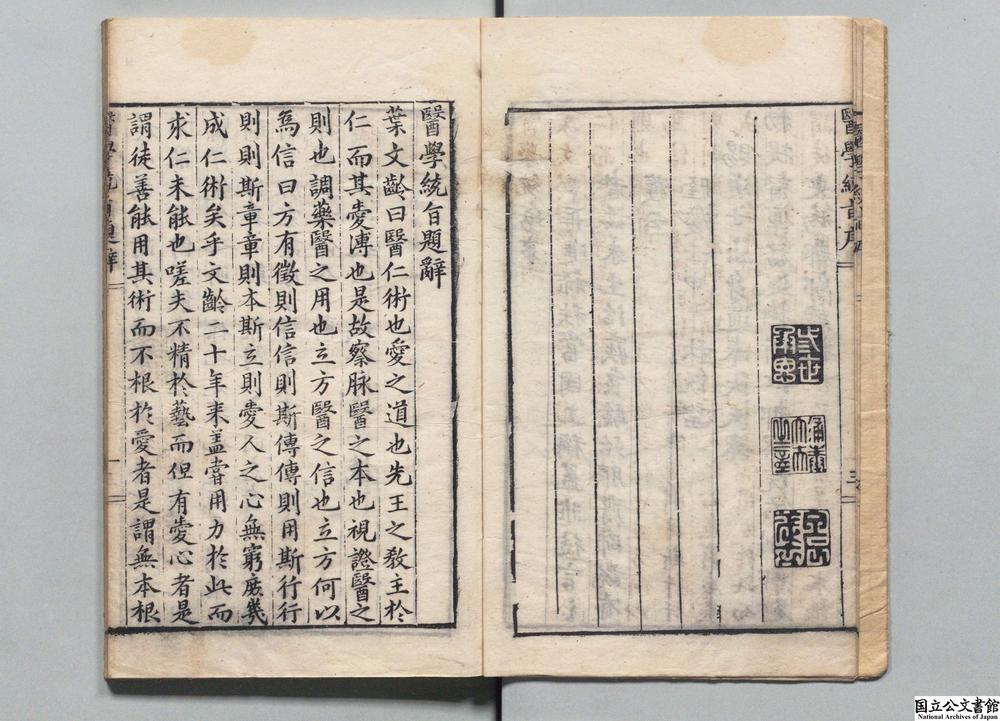 醫學統旨序
三
醫學統旨題辭
葉文齡曰醫仁術也愛之道也先王之教主於
仁而其愛溥也是故察脉醫之本也視證醫之
則也調藥醫之用也立方醫之信也立方何以
為信曰方有徵則信信則斯傳傳則用斯行行
則則斯章章則本斯立則愛人之心無窮庶幾
成仁術矣乎文齡二十年来盖嘗用力於此而
求仁未能也嗟夫不精於藝而但有愛心者是
謂徒善能用其術而不根於愛者是謂無本根
醫學統旨題辭
一
国立公文書館
National Archives of Japan